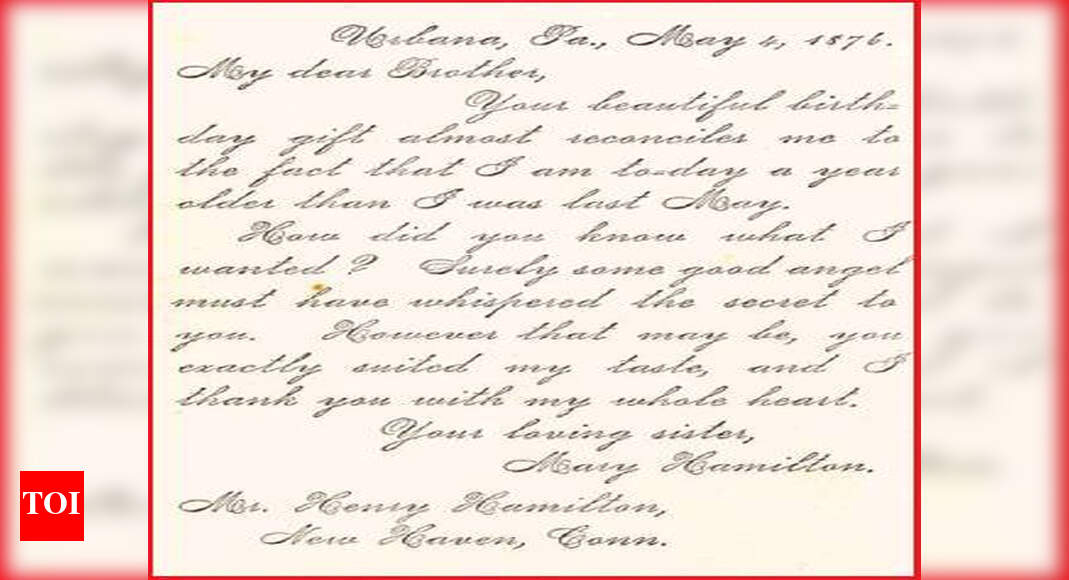 Urbana, Pa., May 4, 1876.
My dear Brother,
Your beautiful birth=
day gift almost reconciles me to
the fact that I am to=day a year
older than I was last May.
How did you know what I
wanted? Surely some good angel
must have whispered the secret to
you. However that may be, you
exactly suited my taste, and I
thank you with my whole heart.
Your loving sister,
Mary Hamilton.
Mr. Henry Hamilton,
New Haven, Conn.
TOI